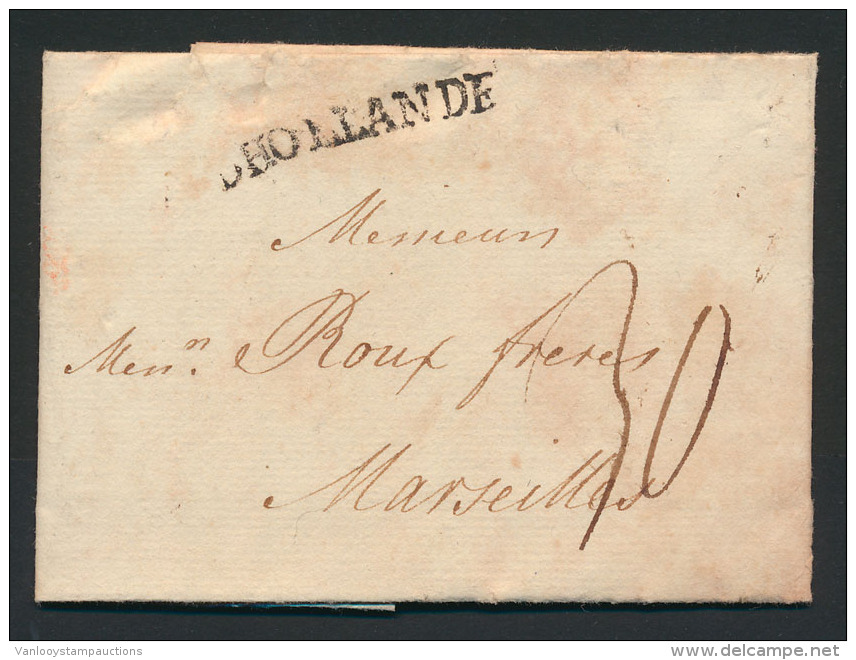 DHOLLANDE
Messieurs
Mess.rs Roux freres
Marseilles
30
Vanlooystampauctions
delcampe.net